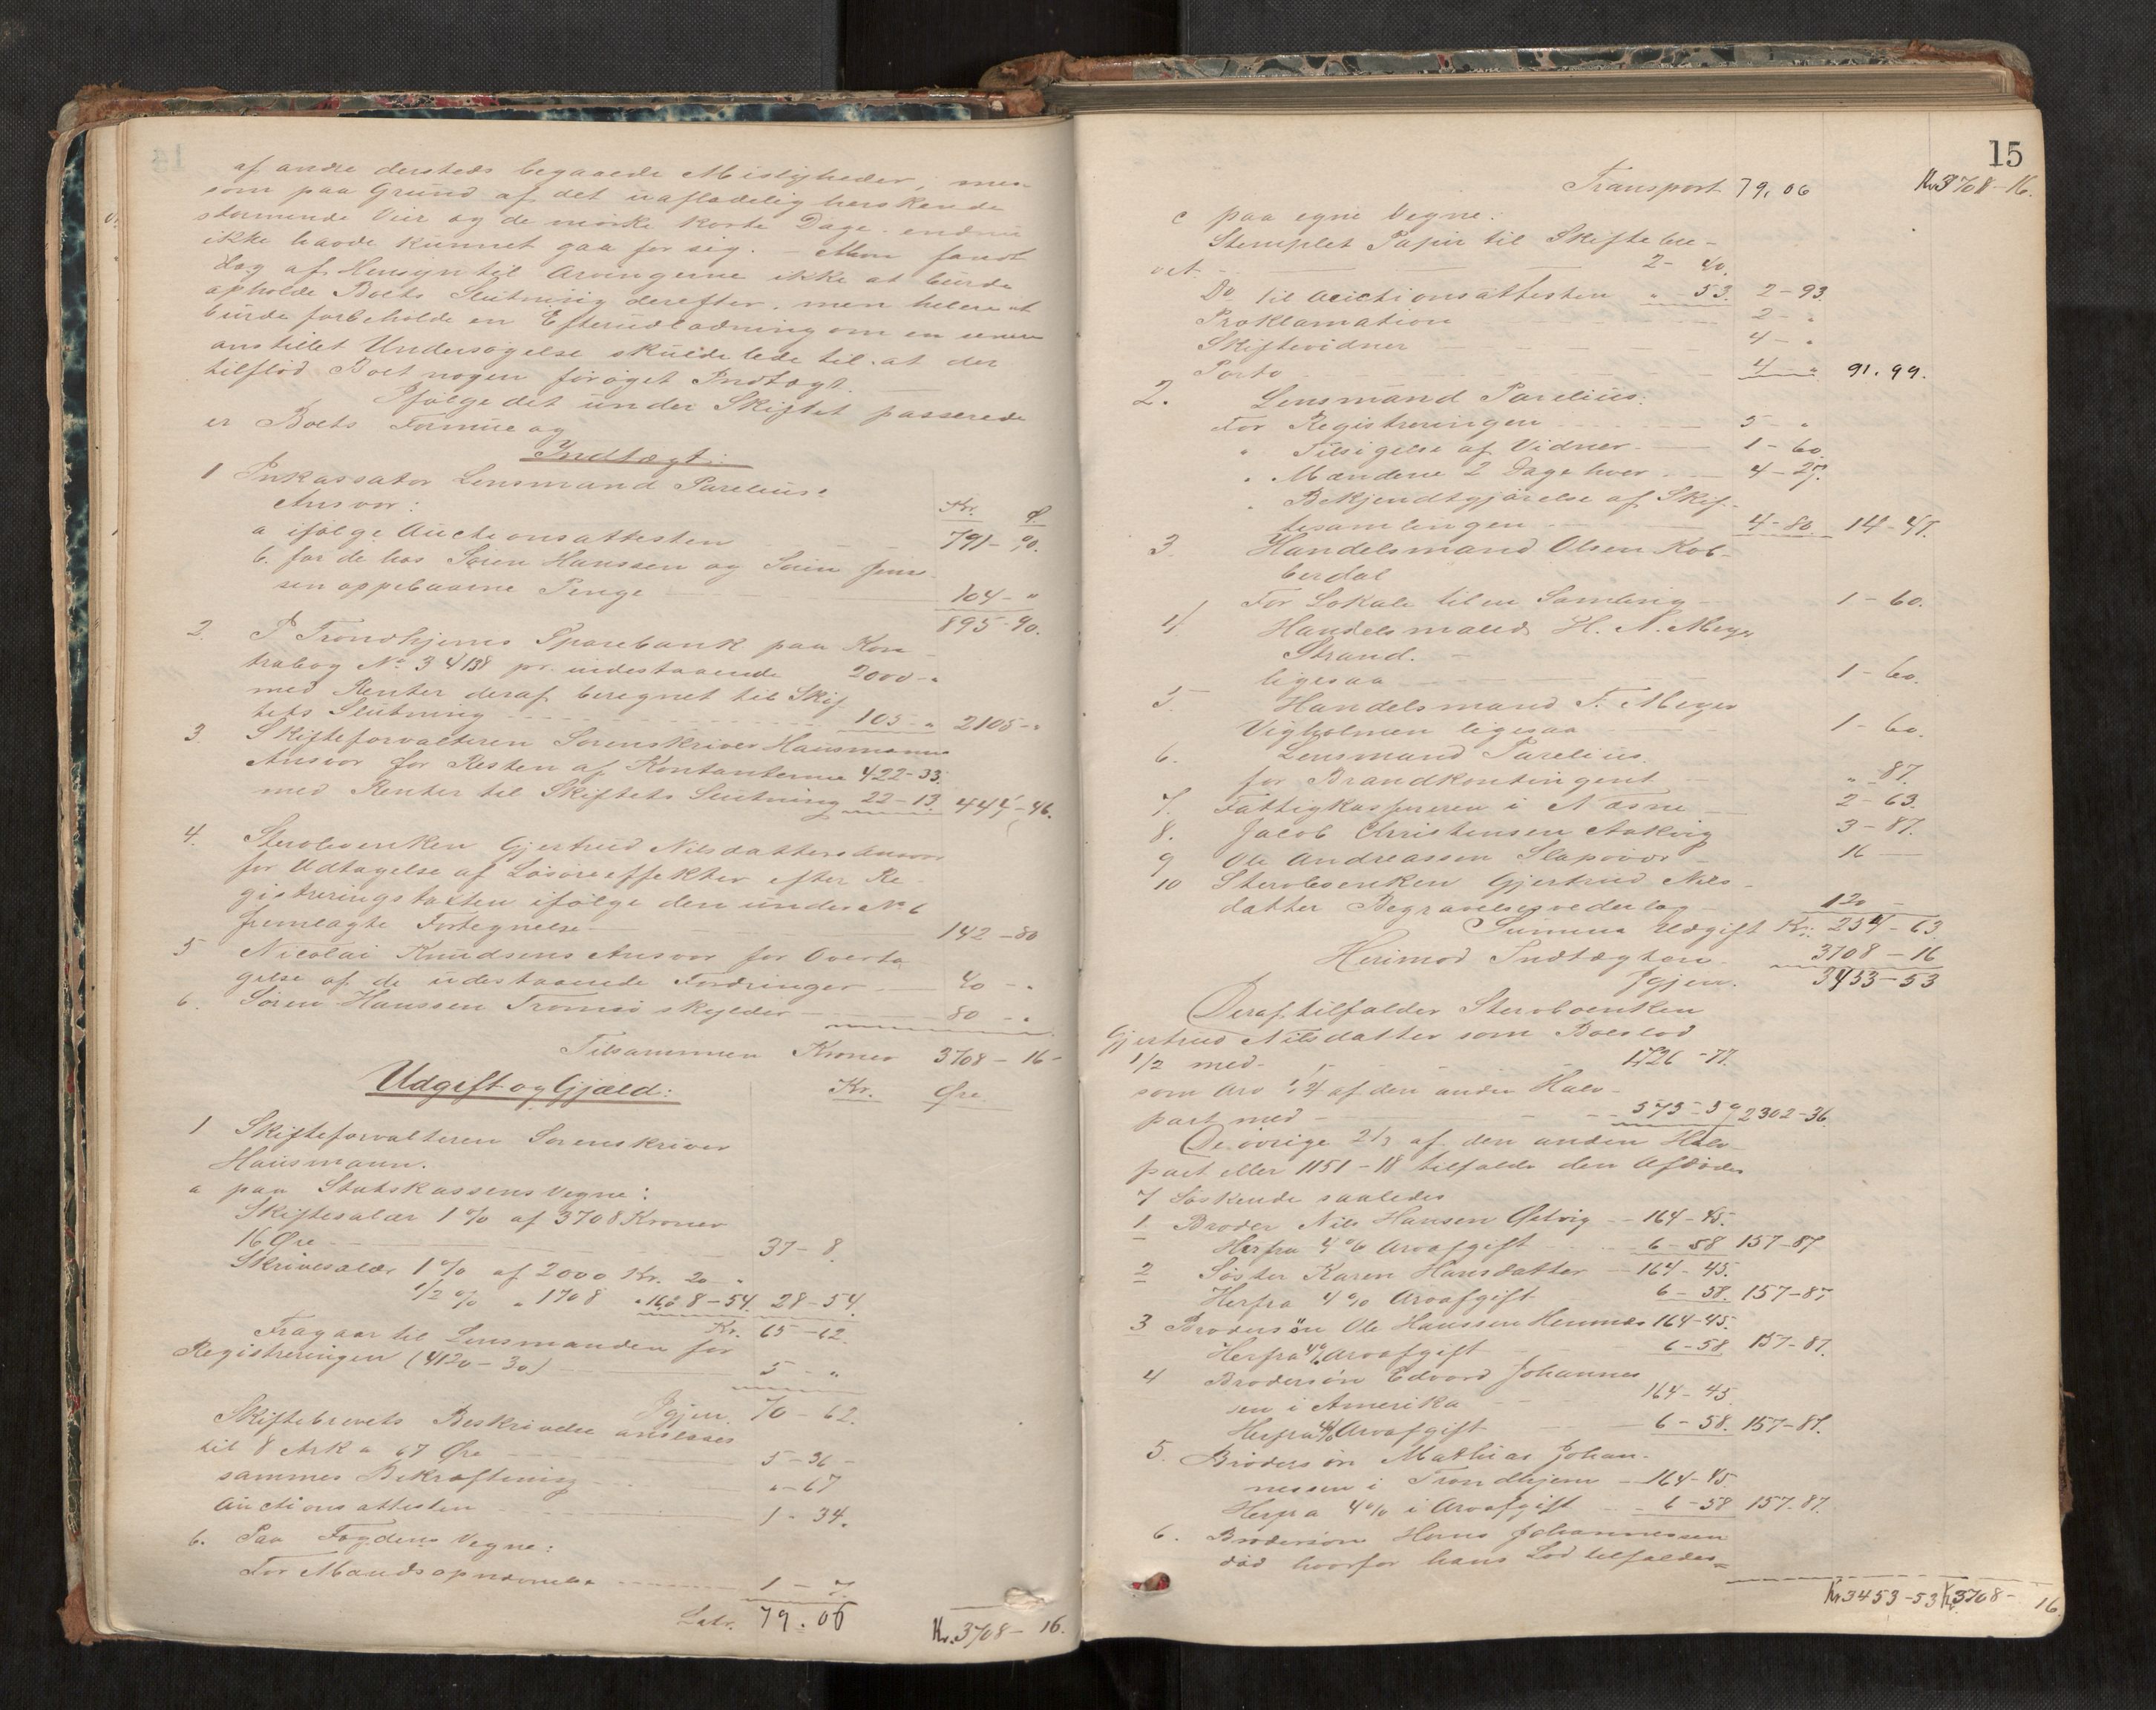 af andre dersteds begaaede Misligheder, men
som paa Grund af det uafladelig herskende
stormende Veir og de mörke korte Dage endnu
ikke havde kunnet gaa for sig. – Man fandt
dog af Hensyn til Arvingerne ikke at burde
opholde Boets Slutning derefter, men helere at
burde forbeholde en Efterudlodning om en senere
anstillet Undersögelse skulde lede til at der
tilflöd Boet nogen foröget Indtægt.
Ifölge det under Skiftet passerede
er Boets Formue og
Indtægt:
1 Inkassator Lensmand Parelius's
Ansvar: Kr. Ø.
a ifölge Auctionsattesten 791 – 90.
b. for de hos Sören Hanssen og Sören Jens-
sen oppebaarne Penge 104 – "
895 – 90.
2. I Trondhjems Sparebank paa Kon-
trabog No 34138 pr. indestaaende 2000 – "
med Renter deraf beregnet til Skif-
tets Slutning 105 – " 2105 – "
3. Skifteforvalteren Sorenskriver Hausmanns
Ansvar for Resten af Kontanterne 422 – 33.
med Renter til Skiftets Slutning 22 – 13. 444 – 46.
4. Stervboenken Gjertrud Nilsdatters Ansvar
for Udtagelse af Lösöreeffekter efter Re-
gistreringstaxten ifölge den under No 6
fremlagte Fortegnelse 142 – 80
5 Nicolai Knudsens Ansvar for Overta-
gelse af de udestaaende Fordringer 40 – "
6. Sören Hanssen Tromsö skylder 80 – "
Tilsammen Kroner 3708 – 16 –
Udgift og Gjæld: Kr. Øre.
1 Skifteforvalteren Sorenskriver
Hausmann.
a paa Statskassens Vegne:
Skiftesalær 1 % af 3708 Kroner
16 Øre 37 – 8.
Skrivesalær 1 % af 2000 Kr. 20 – "
1/2 % " 1708 " 16 ø 8 – 54. 28 – 54.
Kr. 65 – 62.
Fragaar til Lensmanden for
Registreringen (4120 – 30) 5 – "
Igjen. 70 – 62.
Skiftebrevets Beskrivelse ansees
til 8 Ark a 67 Øre 5 – 36 –
sammes Bekræftning " – 67
Auctionsattesten 1 – 34.
b. Paa Fogdens Vegne:
For Mandsopnævnelse 1 – 7.
Latr. 79.06 Kr. 3708 – 16.
15
Transport 79,06 Kr 3708 – 16.
c paa egne Vegne:
Stemplet Papir til Skiftebre-
vet 2 – 40.
Do til Auctionsattesten " 53. 2 – 93.
Proklamation 2 – "
Skiftevidner 4 – "
Porto 4 – " 91.99.
2. Lensmand Parelius:
For Registreringen 5 – "
" Tilsigelse af Vidner 1 – 60.
" Mændene 2 Dage hver 4 – 27.
" Bekjendtgjörelse af Skif-
tesamlingen 4 – 80. 14 – 47.
3. Handelsmand Olsen Kob-
berdal
For Lokale til en Samling 1 – 60.
4. Handelsmand H. A. Meyer
Strand.
ligesaa 1 – 60.
5 Handelsmand F. Meyer
Vigholmen ligesaa 1 – 60.
6. Lensmand Parelius.
for Brandkontingent " 87.
7. Fattigkassereren i Næsne 2 – 63.
8. Jacob Christensen Aakvig 3 – 87.
9 Ole Andreassen Slapövær 16 –
10 Stervboenken Gjertrud Nils-
datter Begravelsesvederlag 120 –
Summa Udgift Kr. 254 – 63
Herimod Indtægten 3708 – 16
Igjen. 3453 – 53
Deraf tilfalder Stervboenken
Gjertrud Nilsdatter som Boeslod
1/2 med 1726 – 77.
som Arv 1/4 af den anden Halv-
part med 575 – 59 2302 – 36.
De övrige 2/3 af den anden Halv-
part eller 1151 – 18 tilfalde den Afdödes
7 Söskende saaledes
1 Broder Nils Hansen Østvig 164 – 45.
Herfra 4 % Arvafgift 6 – 58 157 – 87
2 Söster Karen Hansdatter 164 – 45.
Herfra 4 % Arvafgift 6 – 58. 157 – 87
3 Brodersön Ole Hanssen Hemnes 164 – 45.
Herfra 4 % Arvafgift 6 – 58 157 – 87.
4 Brodersön Edvard Johannes
sen i Amerika 164 – 45
Herfra 4 % Arvafgift 6 – 58. 157 – 87.
5. Brodersön Mathias Johan-
nessen i Trondhjem 164 – 45
Herfra 4 % i Arvafgift 6 – 58 157 – 87.
6. Brodersön Hans Johannessen
död hvorfor hans Lod tilfalder
Kr 3453 – 53 Kr 3708 – 16.